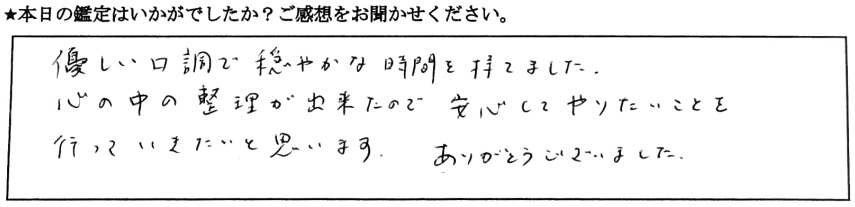 ★本日の鑑定はいかがでしたか？ご感想をお聞かせください。
優しい口調で穏やかな時間を持てました.
心の中の整理が出来たので 安心してやりたいことを
行っていきたいと思います. ありがとうございました.